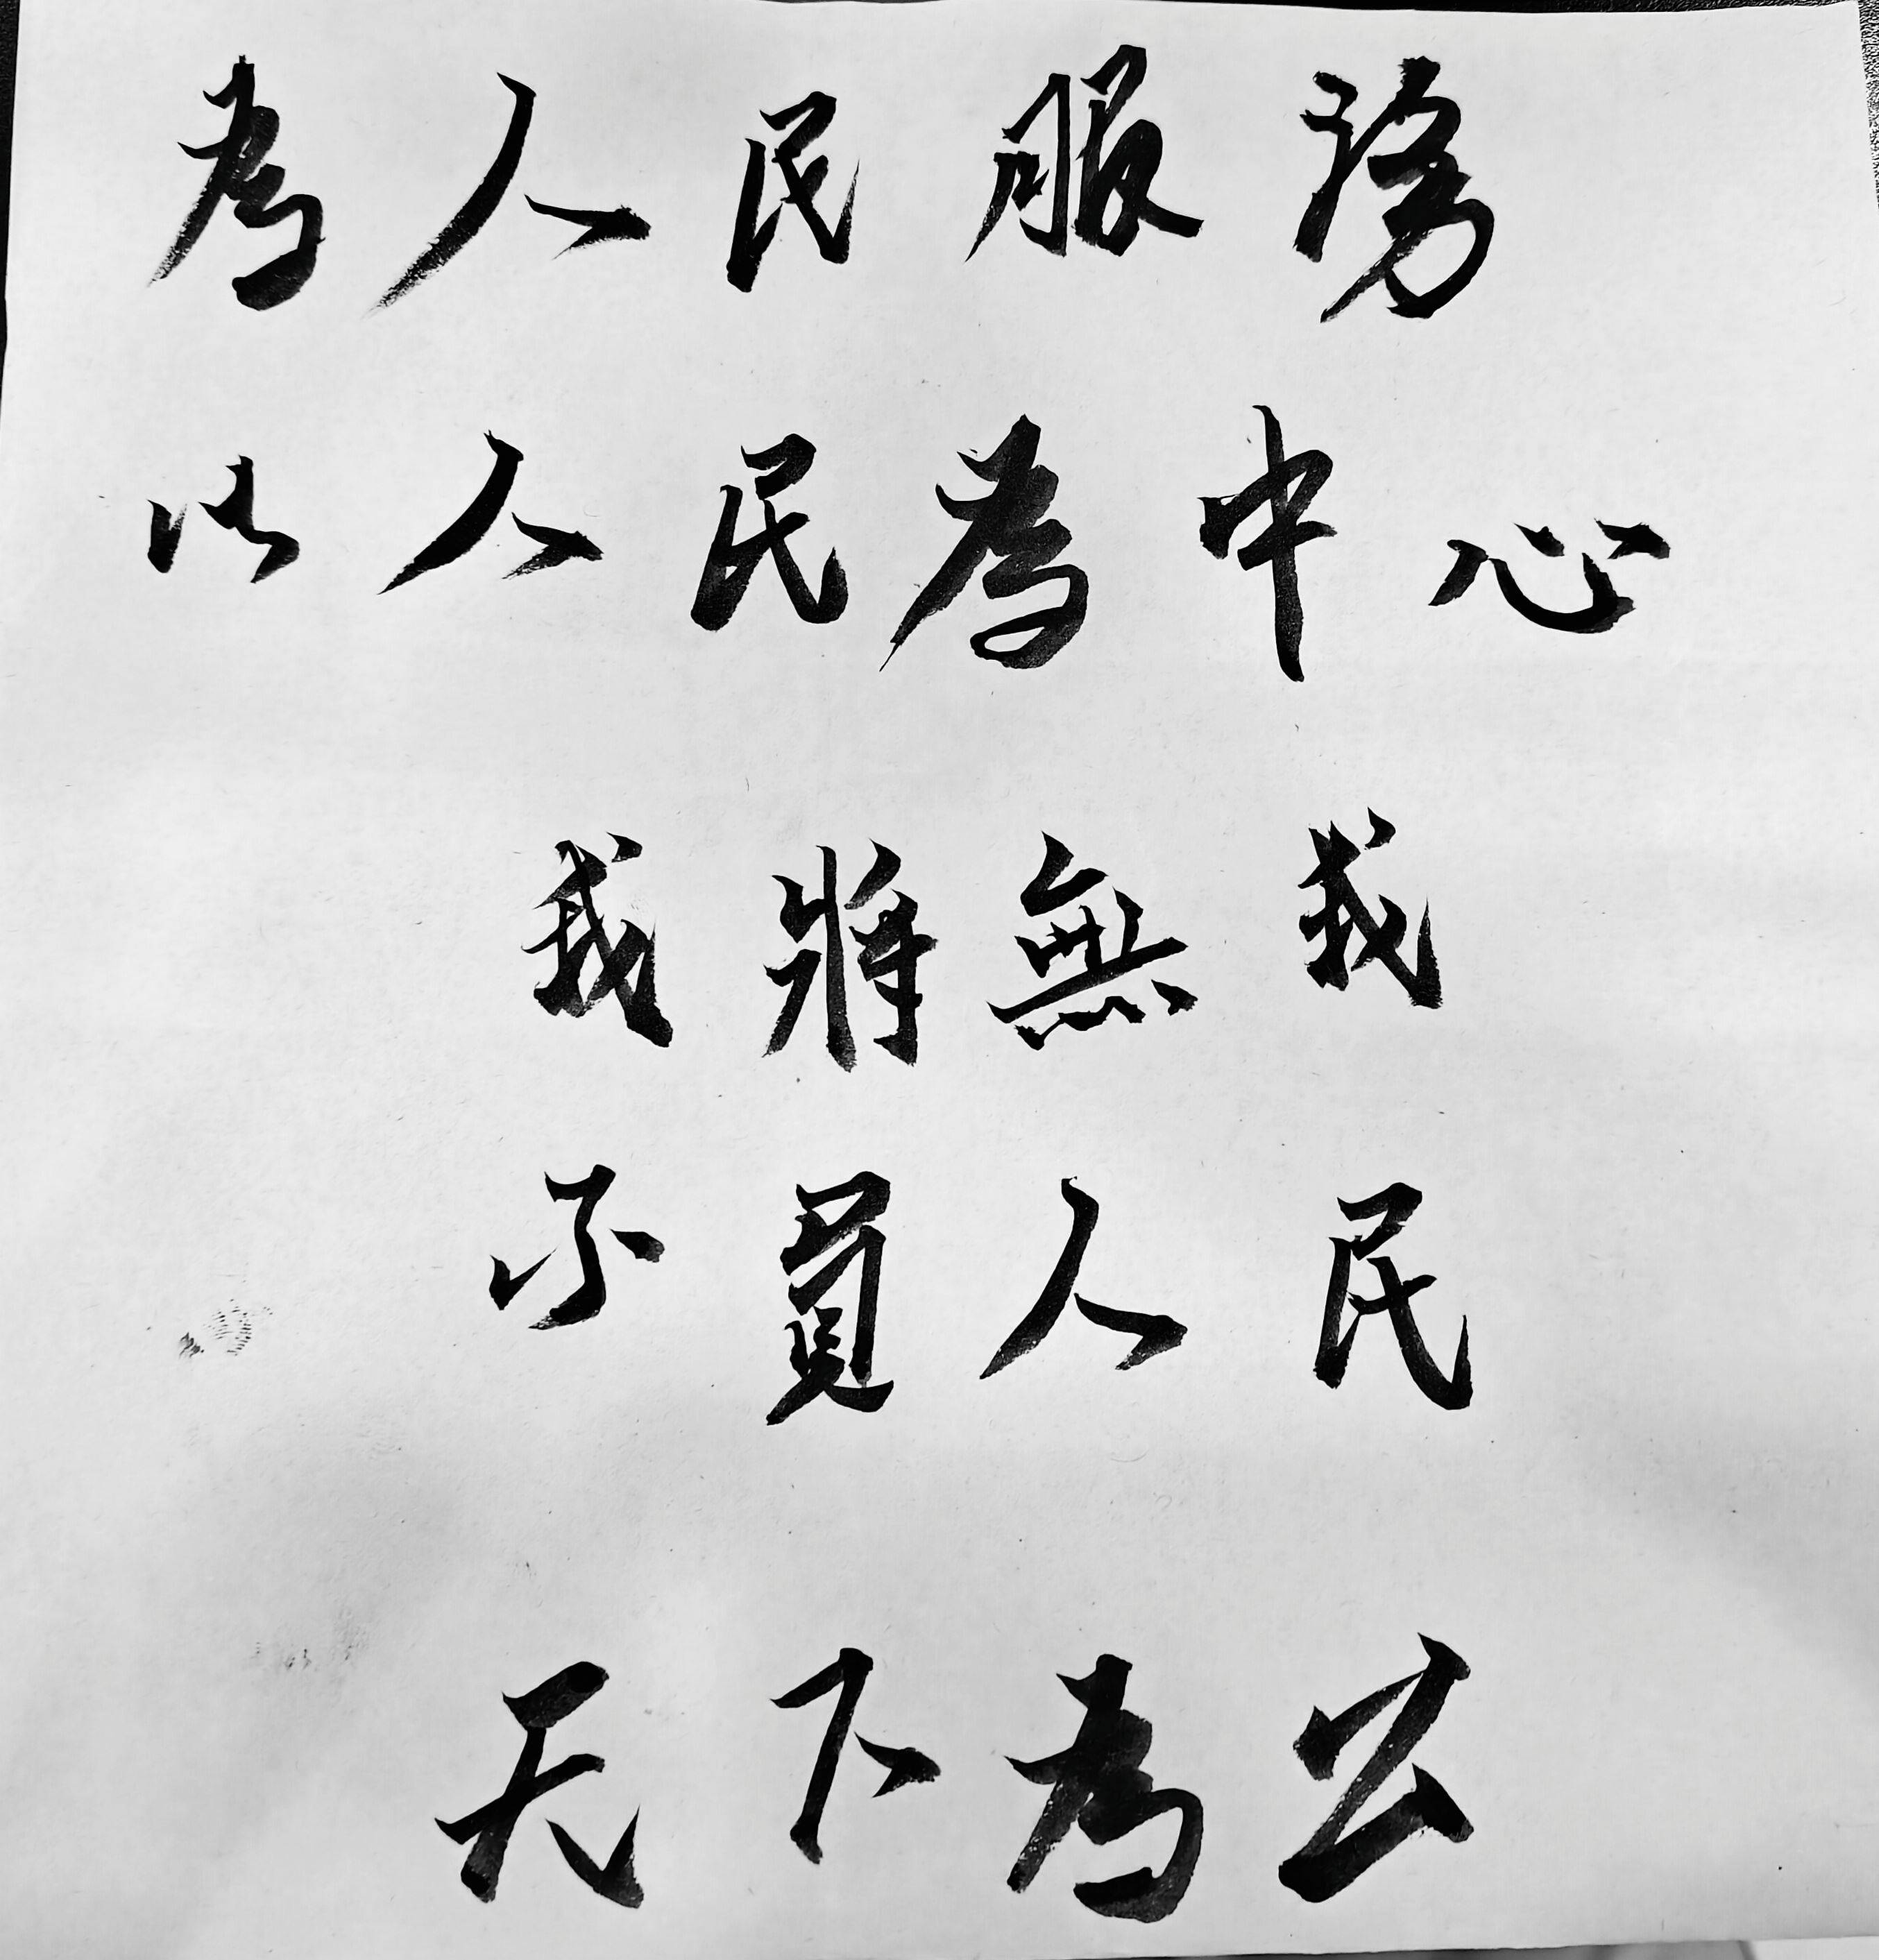 為人民服務
以人民為中心
我將無我
不負人民
天下為公